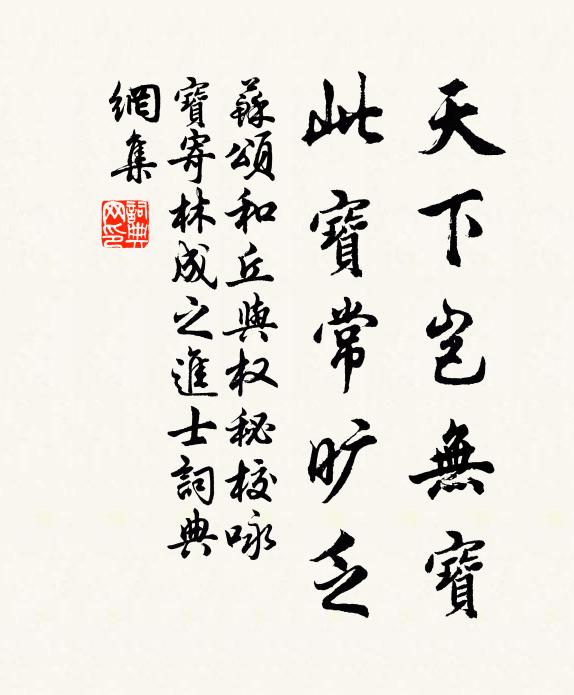 天下豈無寶
此寶常旷乏
蘇頌和丘與权秘校咏
寶寄林成之進士詞典
網集
詞典網印